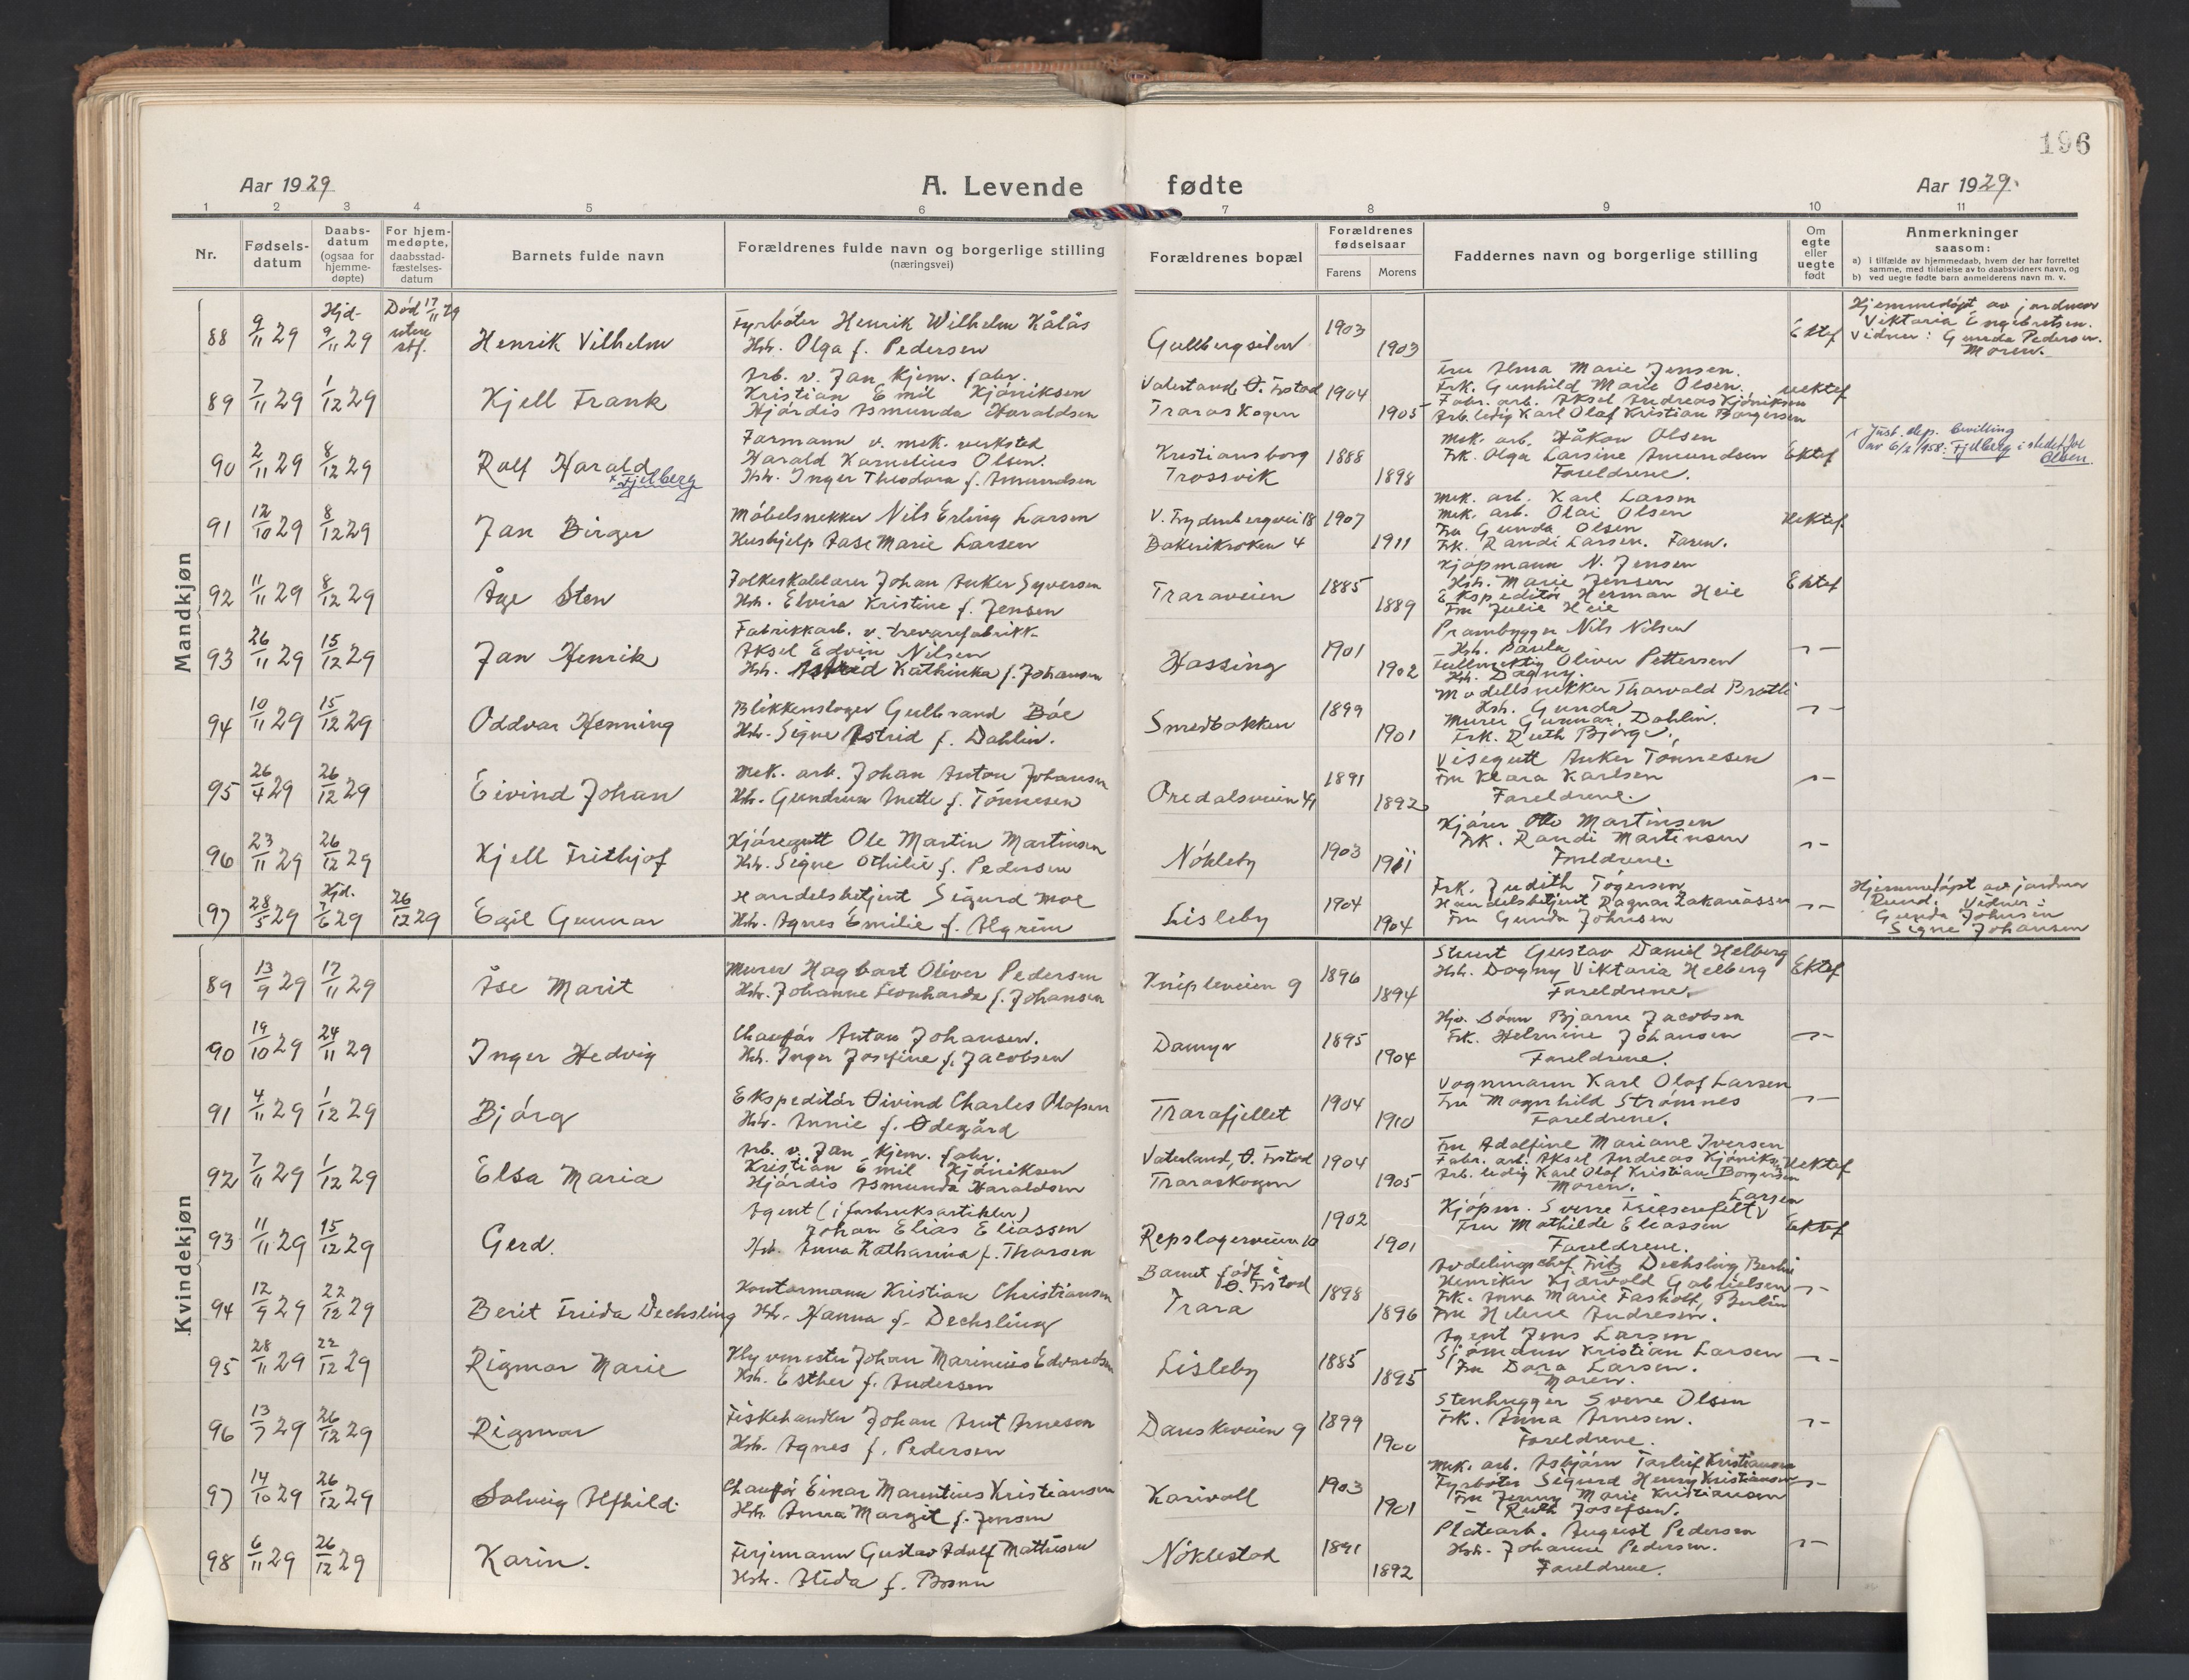 196
Aar 1929
A. Levende fødte
Aar 1929.
1 2 3 4 5 6 7 8 9 10 11
Nr.
Fødselsdatum
Daabsdatum (ogsaa for hjemmedøpte)
For hjemmedøpte, daabsstadfæstelsesdatum
Barnets fulde navn
Forældrenes fulde navn og borgerlige stilling (næringsvei)
Forældrenes bopæl
Forældrenes fødselsaar
Farens Morens
Faddernes navn og borgerlige stilling
Om egte eller uegte født
Anmerkninger saasom:
a) i tilfælde av hjemmedaab, hvem der har forrettet samme, med tilføielse av to daabsvidners navn, og
b) ved uegte fødte barn anmelderens navn m. v.
Mandkjøn
88 9/11 29 Hjd. 9/11 29 Død 17/11 29
Henrik Vilhelm
Fyrbøter Henrik Wilhelm Kålås
Hstr. Olga f. Pedersen
Gullbergsiden 1903 1903
Ektef
Hjemmedøpt av jordmor
Viktoria Engebretsen.
Vidner: Gunda Pedersen.
Moren.
89 7/11 29 1/12 29
Kjell Frank
Arb. v. Jan Kjem. fabr.
Kristian Emil Kjøniksen
Hjørdis Asmunda Haraldsen
Vaterland, Ø. Frstad
Traraskogen 1904 1905
Fru Alma Marie Jensen.
Frk. Gunhild Marie Olsen.
Fabr. arb. Aksel Andreas Kjøniksen
Arb. ledig Karl Olaf Kristian Borgersen
uektef
90 2/11 29 8/12 29
Rolf Harald
x Fjelberg
Formann v. mek. verksted
Harald Kornelius Olsen.
Hstr. Inger Theodora f. Amundsen
Kristiansborg
Trossvik 1888 1898
Mek. arb. Håkon Olsen
Frk. Olga Larsine Amundsen
Foreldrene.
Ektef
x Just. dep. bevilling
av 6/2 1958: Fjelberg i stedet for
Olsen.
91 12/10 29 8/12 29
Jan Birger
Møbelsnekker Nils Erling Larsen
Hushjelp Aase Marie Larsen
V. Frydenbergvei 18
Bakerikroken 4 1907 1911
Mek. arb. Karl Larsen
Mek. arb. Olai Olsen
Fru Gunda Olsen
Frk. Randi Larsen. Faren.
Uektef.
92 11/11 29 8/12 29
Åge Sten
Folkeskolelærer Johan Anker Syversen
Hstr. Elvira Kristine f. Jensen
Traraveien 1885 1889
Kjøpmann N. Jensen
Hstr. Marie Jensen
Ekspeditør Herman Heie
Fru Julie Heie
Ektef
93 26/11 29 15/12 29
Jan Henrik
Fabrikkarb. v. trevarefabrikk
Aksel Edvin Nilsen
Hstr. Astrid Kathinka f. Johansen
Hassing 1901 1902
Prambygger Nils Nilsen
Hstr. Paula
Fullmektig Oliver Pettersen
Hstr. Dagny.
94 10/11 29 15/12 29
Oddvar Henning
Blikkenslager Gulbrand Bøe
Hstr. Signe Astrid f. Dahlin.
Smedbakken 1899 1901
Modellsnekker Thorvald Brøtli
Hstr. Gunda
Murer Gunnar Dahlin.
Frk. Ruth Bjørge.
95 26/4 29 26/12 29
Eivind Johan
Mek. arb. Johan Anton Johansen
Hstr. Gundrun Anette f. Tønnesen
Oredalsveien 41 1891 1892
Visegutt Anker Tønnesen
Fru Klara Karlsen
Foreldrene.
96 23/11 29 26/12 29
Kjell Frithjof
Kjøregutt Ole Martin Martinsen
Hstr. Signe Othilie f. Pedersen
Nøkleby 1903 1911
Kjører Otto Martinsen
Frk. Randi Martinsen
Foreldrene.
97 28/5 29 Hjd. 7/6 29 26/12 29
Egil Gunnar
Handelsbetjent Sigurd Moe
Hstr. Agnes Emilie f. Algrim
Lisleby 1904 1904
Frk. Judith Togersen
Handelsbetjent Ragnar Zakariassen
Fru Gunda Johnsen
Hjemmedøpt av jordmor
Rund. Vidner:
Gunda Johnsen
Signe Johansen
Kvindekjøn
89 13/9 29 17/11 29
Åse Marit
Murer Hagbart Oliver Pedersen
Hstr. Johanne Leonharda f. Johansen
Knipleveien 9 1896 1894
Stuert Gustav Daniel Helberg
Hstr. Dagny Viktoria Helberg
Foreldrene.
Ektef
90 19/10 29 24/11 29
Inger Hedvig
Chauffør Anton Johansen.
Hstr. Inger Josefine f. Jacobsen
Damyr 1895 1904
Hjv. sønn Bjarne Jacobsen
Frk. Helmine Johansen
Foreldrene.
91 4/11 29 1/12 29
Bjørg
Ekspeditør Øivind Charles Olafsen
Hstr. Annie f. Ødegård
Trarafjellet 1904 1910
Vognmann Karl Olaf Larsen
Fru Magnhild Strømnes
Foreldrene.
92 7/11 29 1/12 29
Elsa Maria
Arb. v. Jan Kjem. fabr.
Kristian Emil Kjøniksen
Hjørdis Asmunda Haraldsen
Vaterland, Ø. Frstad
Traraskogen 1904 1905
Fru Adolfine Mariane Iversen
Fabr. arb. Aksel Andreas Kjøniksen
Arb. ledig Karl Olaf Kristian Borgersen
Moren.
Uektef
93 11/11 29 15/12 29
Gerd.
Agent (i forbruksartikler)
Johan Elias Eliassen
Hstr. Anna Katharina f. Thorsen
Repslagerveien 10 1902 1901
Larsen
Kjøpm. Sverre Friesenfelt
Fru Mathilde Eliassen
Foreldrene.
Ektef
94 12/9 29 22/12 29
Berit Frida Dechsling
Kontormann Kristian Christiansen
Hstr. Hanna f. Dechsling
Barnet født i
Ø. Frstad
Trara 1898 1896
Avdelingschef Fritz Dechsling Berlin
Henriker Kjærvold Gabrielsen
Frk. Anna Marie Fasholf, Berlin
Fru Helene Andresen.
95 28/11 29 22/12 29
Rigmor Marie
Johan Marinius Edvardsen
Hstr. Esther f. Andersen
Lisleby 1885 1895
Agent Jens Larsen
Sjømann Kristian Larsen
Fru Dora Larsen.
Moren.
96 13/7 29 26/12 29
Rigmor
Fiskehandler Johan Arnt Arnesen
Hstr. Agnes f. Pedersen
Danskeveien 9 1899 1900
Stenhugger Sverre Olsen
Frk. Anna Arnesen.
Foreldrene.
97 14/10 29 26/12 29
Solveig Alfhild.
Chauffør Einar Marentius Kristiansen
Hstr. Anna Margit f. Jensen
Karivoll 1903 1901
Mek. arb. Asbjørn Torleif Kristiansen
Fyrbøter Sigurd Henry Kristiansen
Fru Jenny Marie Kristiansen
— Ruth Josefsen.
98 6/11 29 26/12 29
Karin.
Ferjemann Gustav Adolf Mathisen
Hstr. Alida f. Brenn
Nøklestad 1891 1892
Platearb. August Pedersen
Hstr. Johanne Pedersen.
Foreldrene.